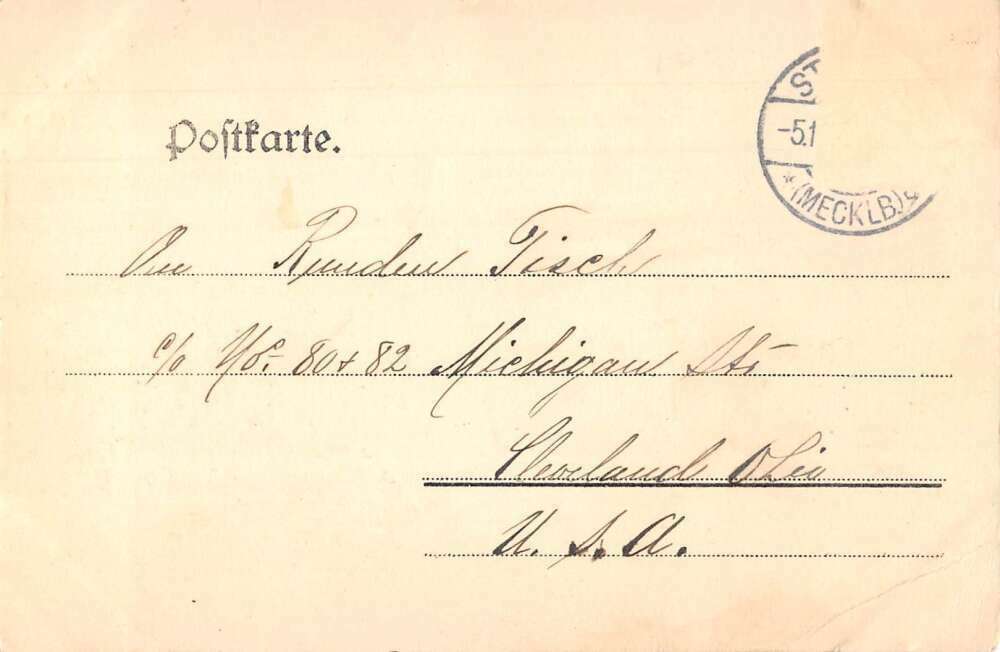 Postkarte.
ST
-5.1
*(MECKLB.)
Runden Tisch
c/o No. 80 + 82 Michigan Str
Cleveland Ohio
U. S. A.